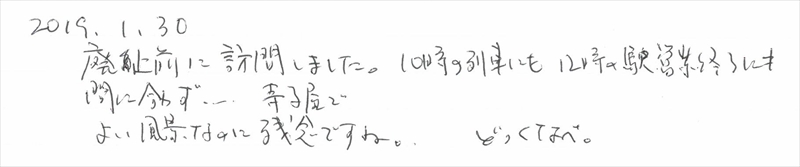 2019.1.30
廃止前に訪問しました。10時の列車にも12時の駅営業終了にも
間に合わず… 寺子屋で
よい風景なのに残念ですね。 どっくなべ。